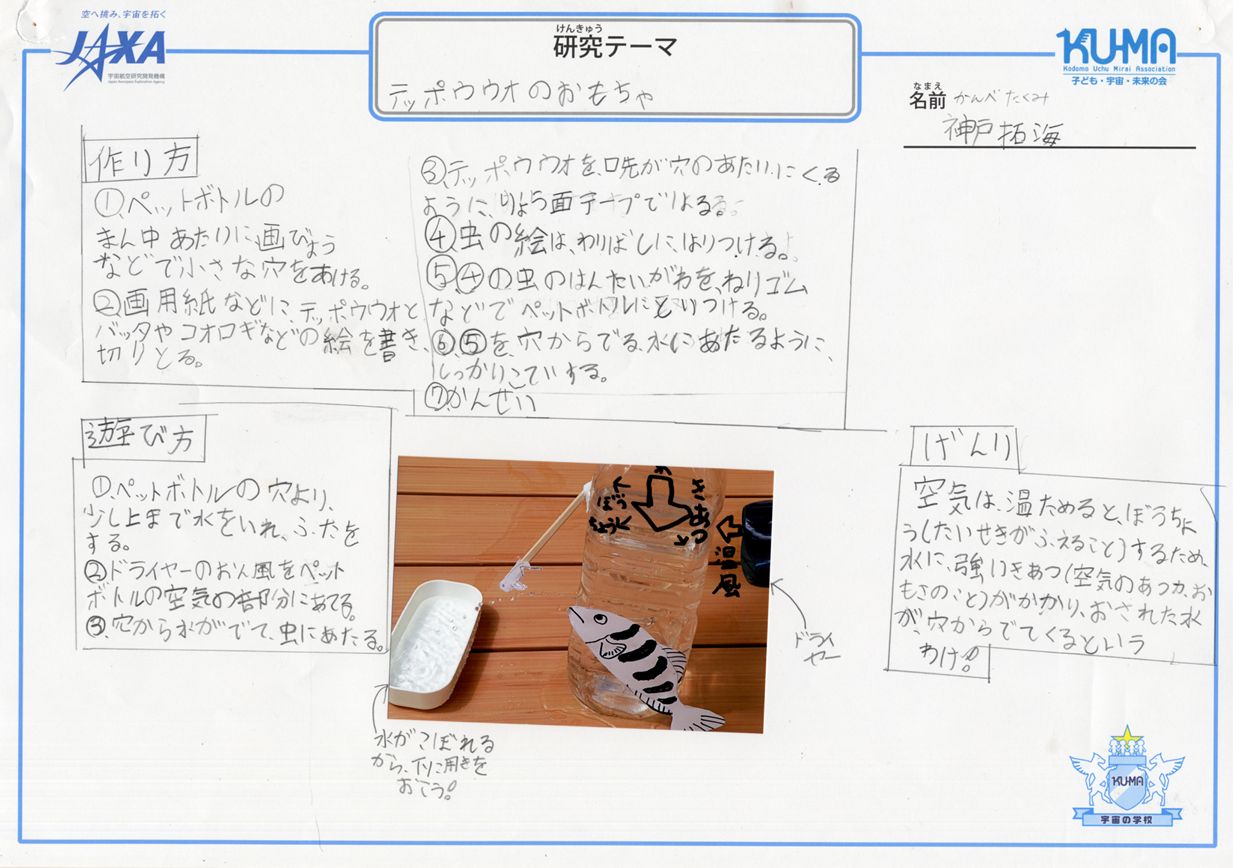 空へ挑み、宇宙を拓く
JAXA
宇宙航空研究開発機構
Japan Aerospace Exploration Agency
けんきゅう
研究テーマ
テッポウウオのおもちゃ
KU-MA
Kodomo Uchu Mirai Association
子ども・宇宙・未来の会
なまえ
名前 かんべ たくみ
神戸 拓海
作り方
①、ペットボトルの
まん中あたりに、画びょう
などで小さな穴をあける。
②画用紙などに、テッポウウオと
バッタやコオロギなどの絵を書き、
切りとる。
③、テッポウウオを、口先が穴のあたりにくる
ように、りょう面テープではる。
④、虫の絵は、わりばしに、はりつける。
⑤、④の虫のはんたいがわを、ねりゴム
などでペットボトルにとりつける。
⑥、⑤を、穴からでる、水にあたるように、
しっかりこていする。
⑦、かんせい
遊び方
①、ペットボトルの穴より、
少し上まで水をいれ、ふたを
する。
②ドライヤーのおん風をペット
ボトルの空気の部分にあてる。
③、穴から水がでて、虫にあたる。
きあつ
ぼう
ちょう
温風
ドライ
ヤー
水がこぼれる
から、下に用きを
おこう!
げんり
空気は、温ためると、ぼうちょ
う(たいせきがふえること)するため、
水に、強いきあつ(空気のあつカ、お
もさのこと)がかかり、おされた水
が、穴からでてくるという
わけ!!
KU-MA
宇宙の学校